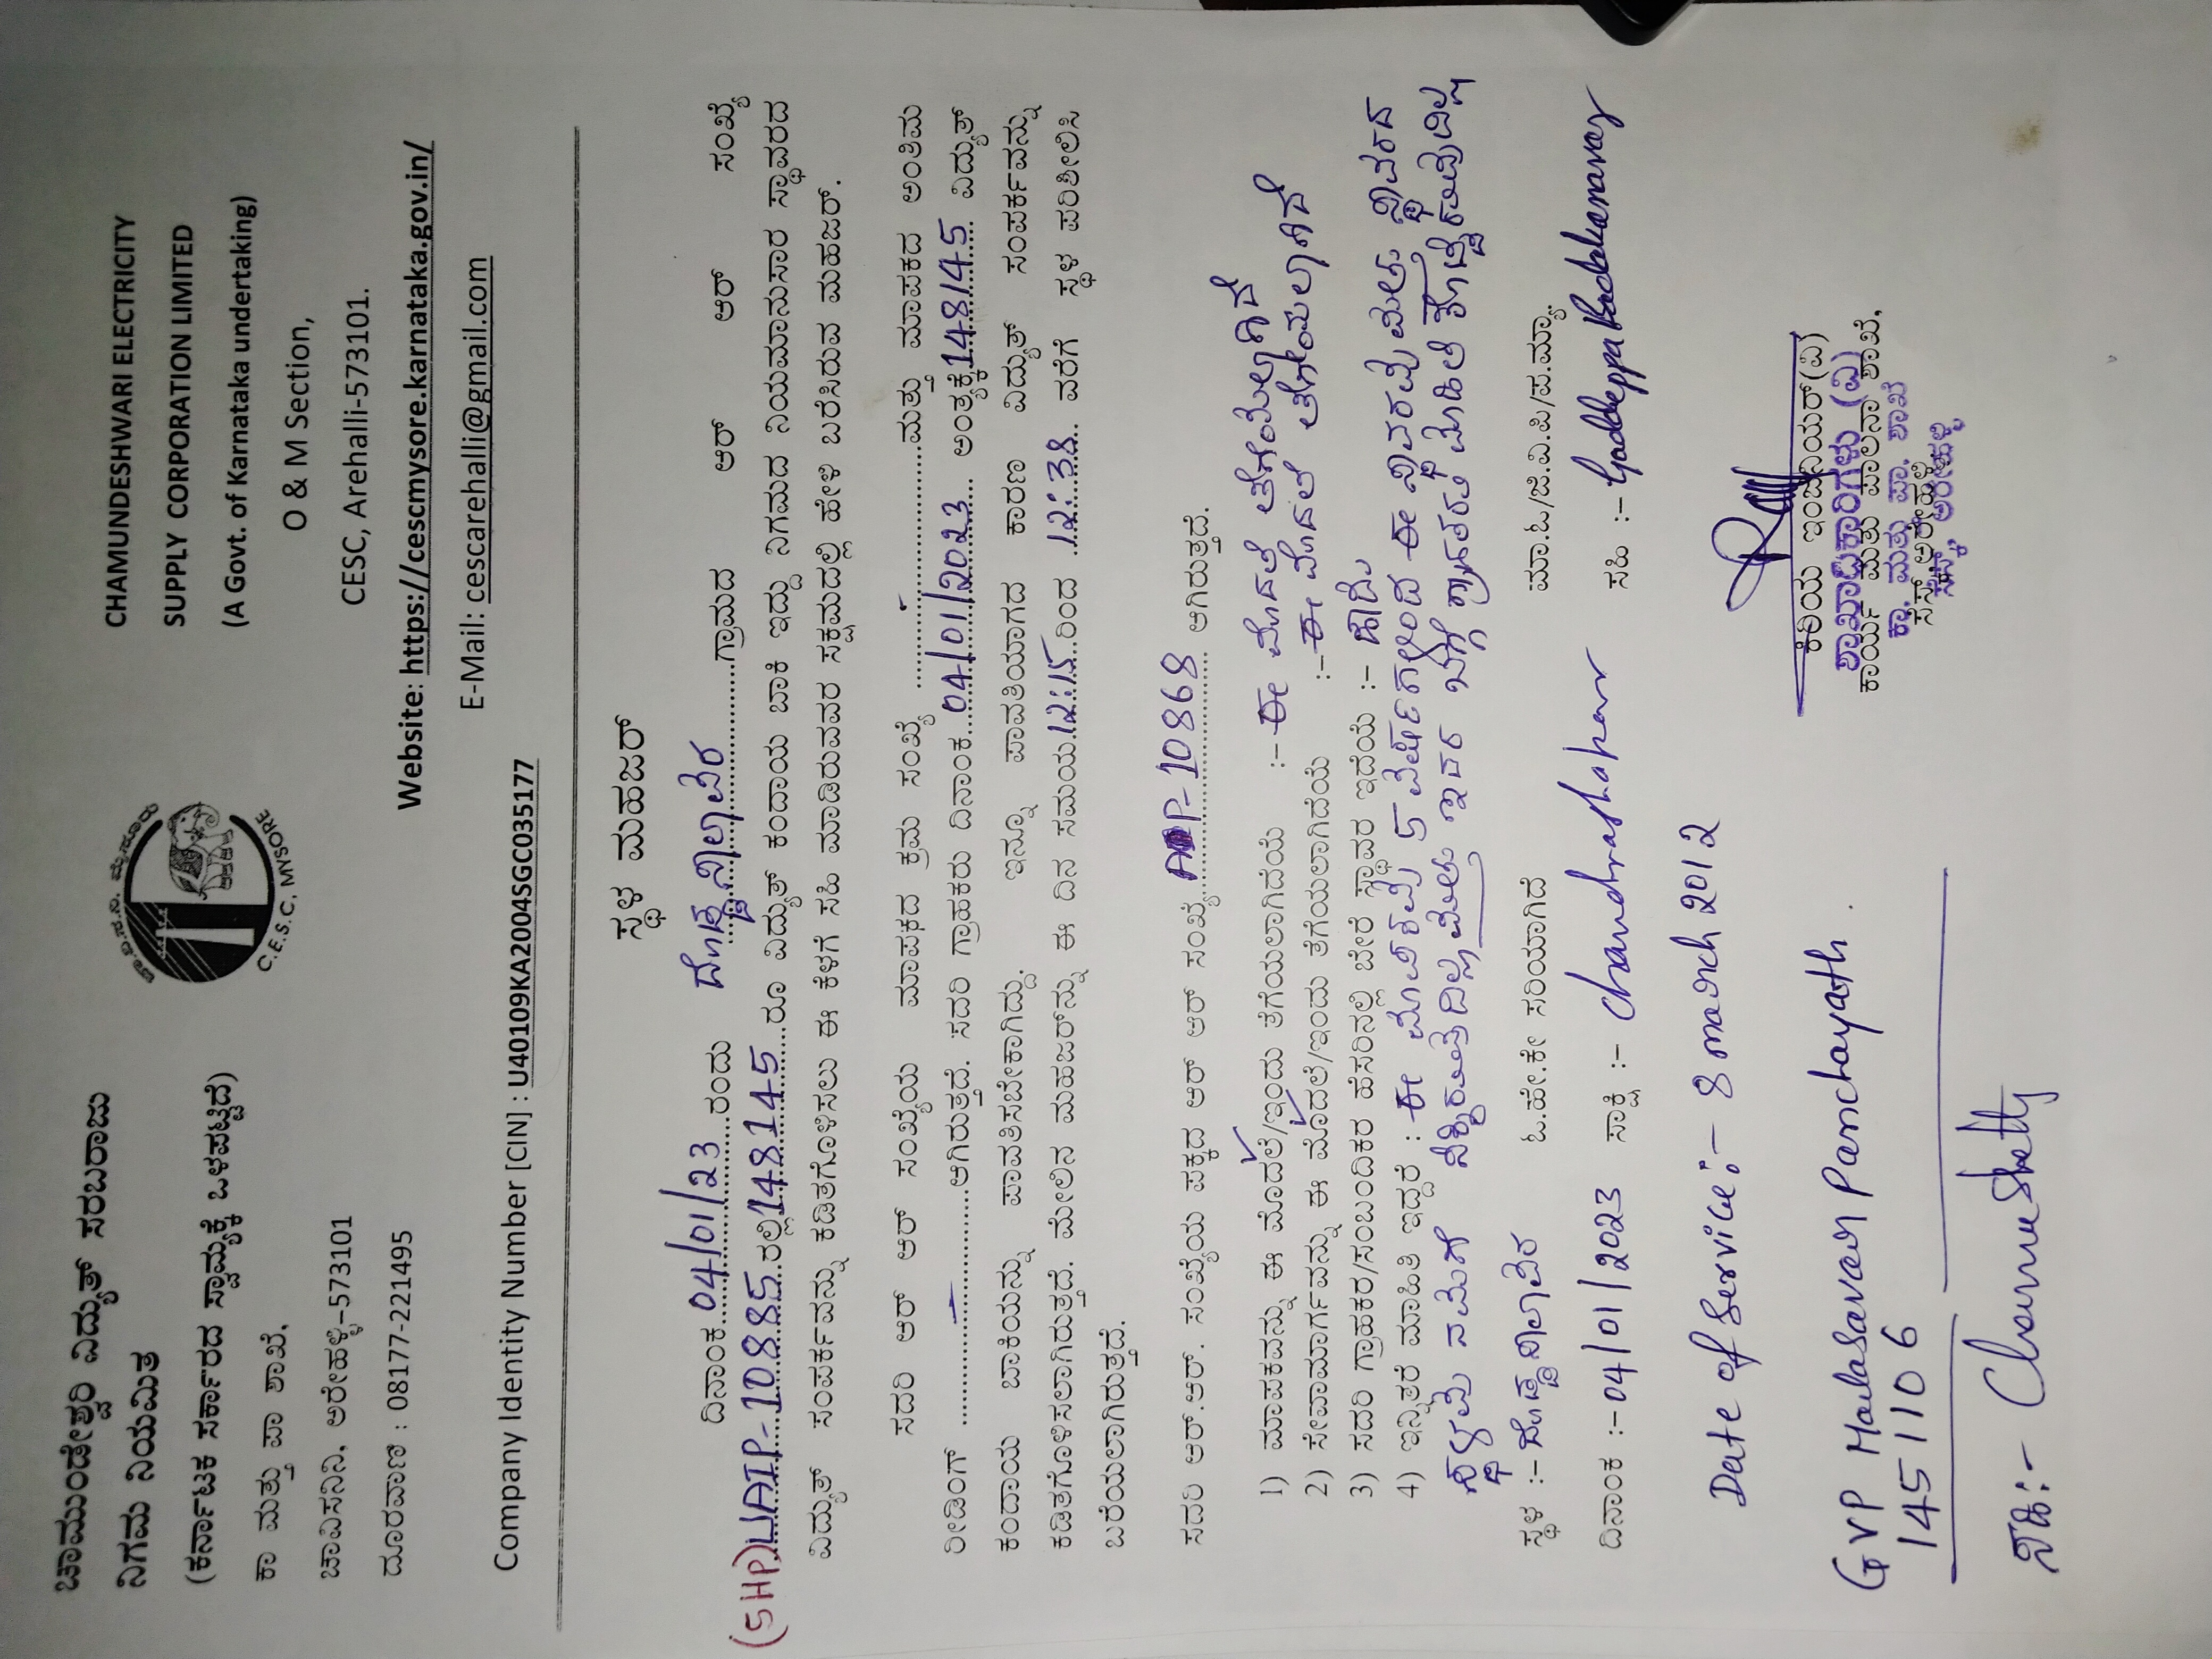 ಚಾಮುಂಡೇಶ್ವರಿ ವಿದ್ಯುತ್ ಸರಬರಾಜು
ನಿಗಮ ನಿಯಮಿತ
(ಕರ್ನಾಟಕ ಸರ್ಕಾರದ ಸ್ವಾಮ್ಯಕ್ಕೆ ಒಳಪಟ್ಟಿದೆ)
ಕಾ ಮತ್ತು ಪಾ ಶಾಖೆ,
ಚಾವಿಸನಿನಿ, ಅರೇಹಳ್ಳಿ-573101
ದೂರವಾಣಿ : 08177-221495
C.E.S.C, MYSORE
CHAMUNDESHWARI ELECTRICITY
SUPPLY CORPORATION LIMITED
(A Govt. of Karnataka undertaking)
O & M Section,
CESC, Arehalli-573101.
Website: https://cescmysore.karnataka.gov.in/
E-Mail: cescarehalli@gmail.com
Company Identity Number [CIN] : U40109KA2004SGC035177
ಸ್ಥಳ ಮಹಜರ್
ದಿನಾಂಕ 04/01/23 ರಂದು ದೊಡ್ಡಸಾಲಾವರ ಗ್ರಾಮದ ಆರ್ ಆರ್ ಸಂಖ್ಯೆ
(5HP) UAIP-10885 ರಲ್ಲಿ 148145 ರೂ ವಿದ್ಯುತ್ ಕಂದಾಯ ಬಾಕಿ ಇದ್ದು ನಿಗಮದ ನಿಯಮಾನುಸಾರ ಸ್ಥಾವರದ
ವಿದ್ಯುತ್ ಸಂಪರ್ಕವನ್ನು ಕಡಿತಗೊಳಿಸಲು ಈ ಕೆಳಗೆ ಸಹಿ ಮಾಡಿರುವವರ ಸಕ್ಷಮದಲ್ಲಿ ಹೇಳಿ ಬರೆಸಿರುವ ಮಹಜರ್.
ಸದರಿ ಆರ್ ಆರ್ ಸಂಖ್ಯೆಯ ಮಾಪಕದ ಕ್ರಮ ಸಂಖ್ಯೆ ........ ಮತ್ತು ಮಾಪಕದ ಅಂತಿಮ
ರೀಡಿಂಗ್ ........ ಆಗಿರುತ್ತದೆ. ಸದರಿ ಗ್ರಾಹಕರು ದಿನಾಂಕ 04/01/2023 ಅಂತ್ಯಕ್ಕೆ 148145 ವಿದ್ಯುತ್
ಕಂದಾಯ ಬಾಕಿಯನ್ನು ಪಾವತಿಸಬೇಕಾಗಿದ್ದು. ಇನ್ನೂ ಪಾವತಿಯಾಗದ ಕಾರಣ ವಿದ್ಯುತ್ ಸಂಪರ್ಕವನ್ನು
ಕಡಿತಗೊಳಿಸಲಾಗಿರುತ್ತದೆ. ಮೇಲಿನ ಮಹಜರ್‌ನ್ನು ಈ ದಿನ ಸಮಯ 12:15 ರಿಂದ 12:38 ವರೆಗೆ ಸ್ಥಳ ಪರಿಶೀಲಿಸಿ
ಬರೆಯಲಾಗಿರುತ್ತದೆ.
ಸದರಿ ಆರ್.ಆರ್. ಸಂಖ್ಯೆಯ ಪಕ್ಕದ ಆರ್ ಆರ್ ಸಂಖ್ಯೆ AP-10868 ಆಗಿರುತ್ತದೆ.
1) ಮಾಪಕವನ್ನು ಈ ಮೊದಲೆ/ಇಂದು ತೆಗೆಯಲಾಗಿದೆಯೆ :- ಈ ಮೊದಲೆ ತೆಗೆಯಲಾಗಿದೆ
2) ಸೇವಾಮಾರ್ಗವನ್ನು ಈ ಮೊದಲೆ/ಇಂದು ತೆಗೆಯಲಾಗಿದೆಯೆ :- ಈ ಮೊದಲೆ ತೆಗೆಯಲಾಗಿದೆ
3) ಸದರಿ ಗ್ರಾಹಕರ/ಸಂಬಂದಿಕರ ಹೆಸರಿನಲ್ಲಿ ಬೇರೆ ಸ್ಥಾವರ ಇದೆಯೆ :- ಹೌದು
4) ಇನ್ನಿತರೆ ಮಾಹಿತಿ ಇದ್ದರೆ : ಈ 5 ವರ್ಷಗಳಿಂದ ಈ ಸ್ಥಾವರವು ಸ್ಥಾವರದ
ಇದರ ಬಗ್ಗೆ ಗ್ರಾಹಕರು ಮಾಹಿತಿ
ಸ್ಥಳ :- ದೊಡ್ಡಸಾಲಾವರ ಓ.ಹೇ.ಕೇ ಸರಿಯಾಗಿದೆ ಮಾ.ಓ/ಜೆ.ವಿ.ಪಿ/ಪ.ಮ್ಯಾ.
ದಿನಾಂಕ :- 04/01/2023 ಸಾಕ್ಷಿ :- Chandrashakar ಸಹಿ :-
Date of Service:- 8 march 2012
ಕಿರಿಯ ಇಂಜಿನಿಯರ್(ವಿ)
ಶಾಖಾಧಿಕಾರಿಗಳು (ವಿ)
ಕಾರ್ಯ ಮತ್ತು ಪಾಲನಾ ಶಾಖೆ,
ಕಾ. ಮತ್ತು ಪಾ. ಶಾಖೆ
GVP Malasavar Panchayath.
1451106
ಸಹಿ:- Channu Shetty